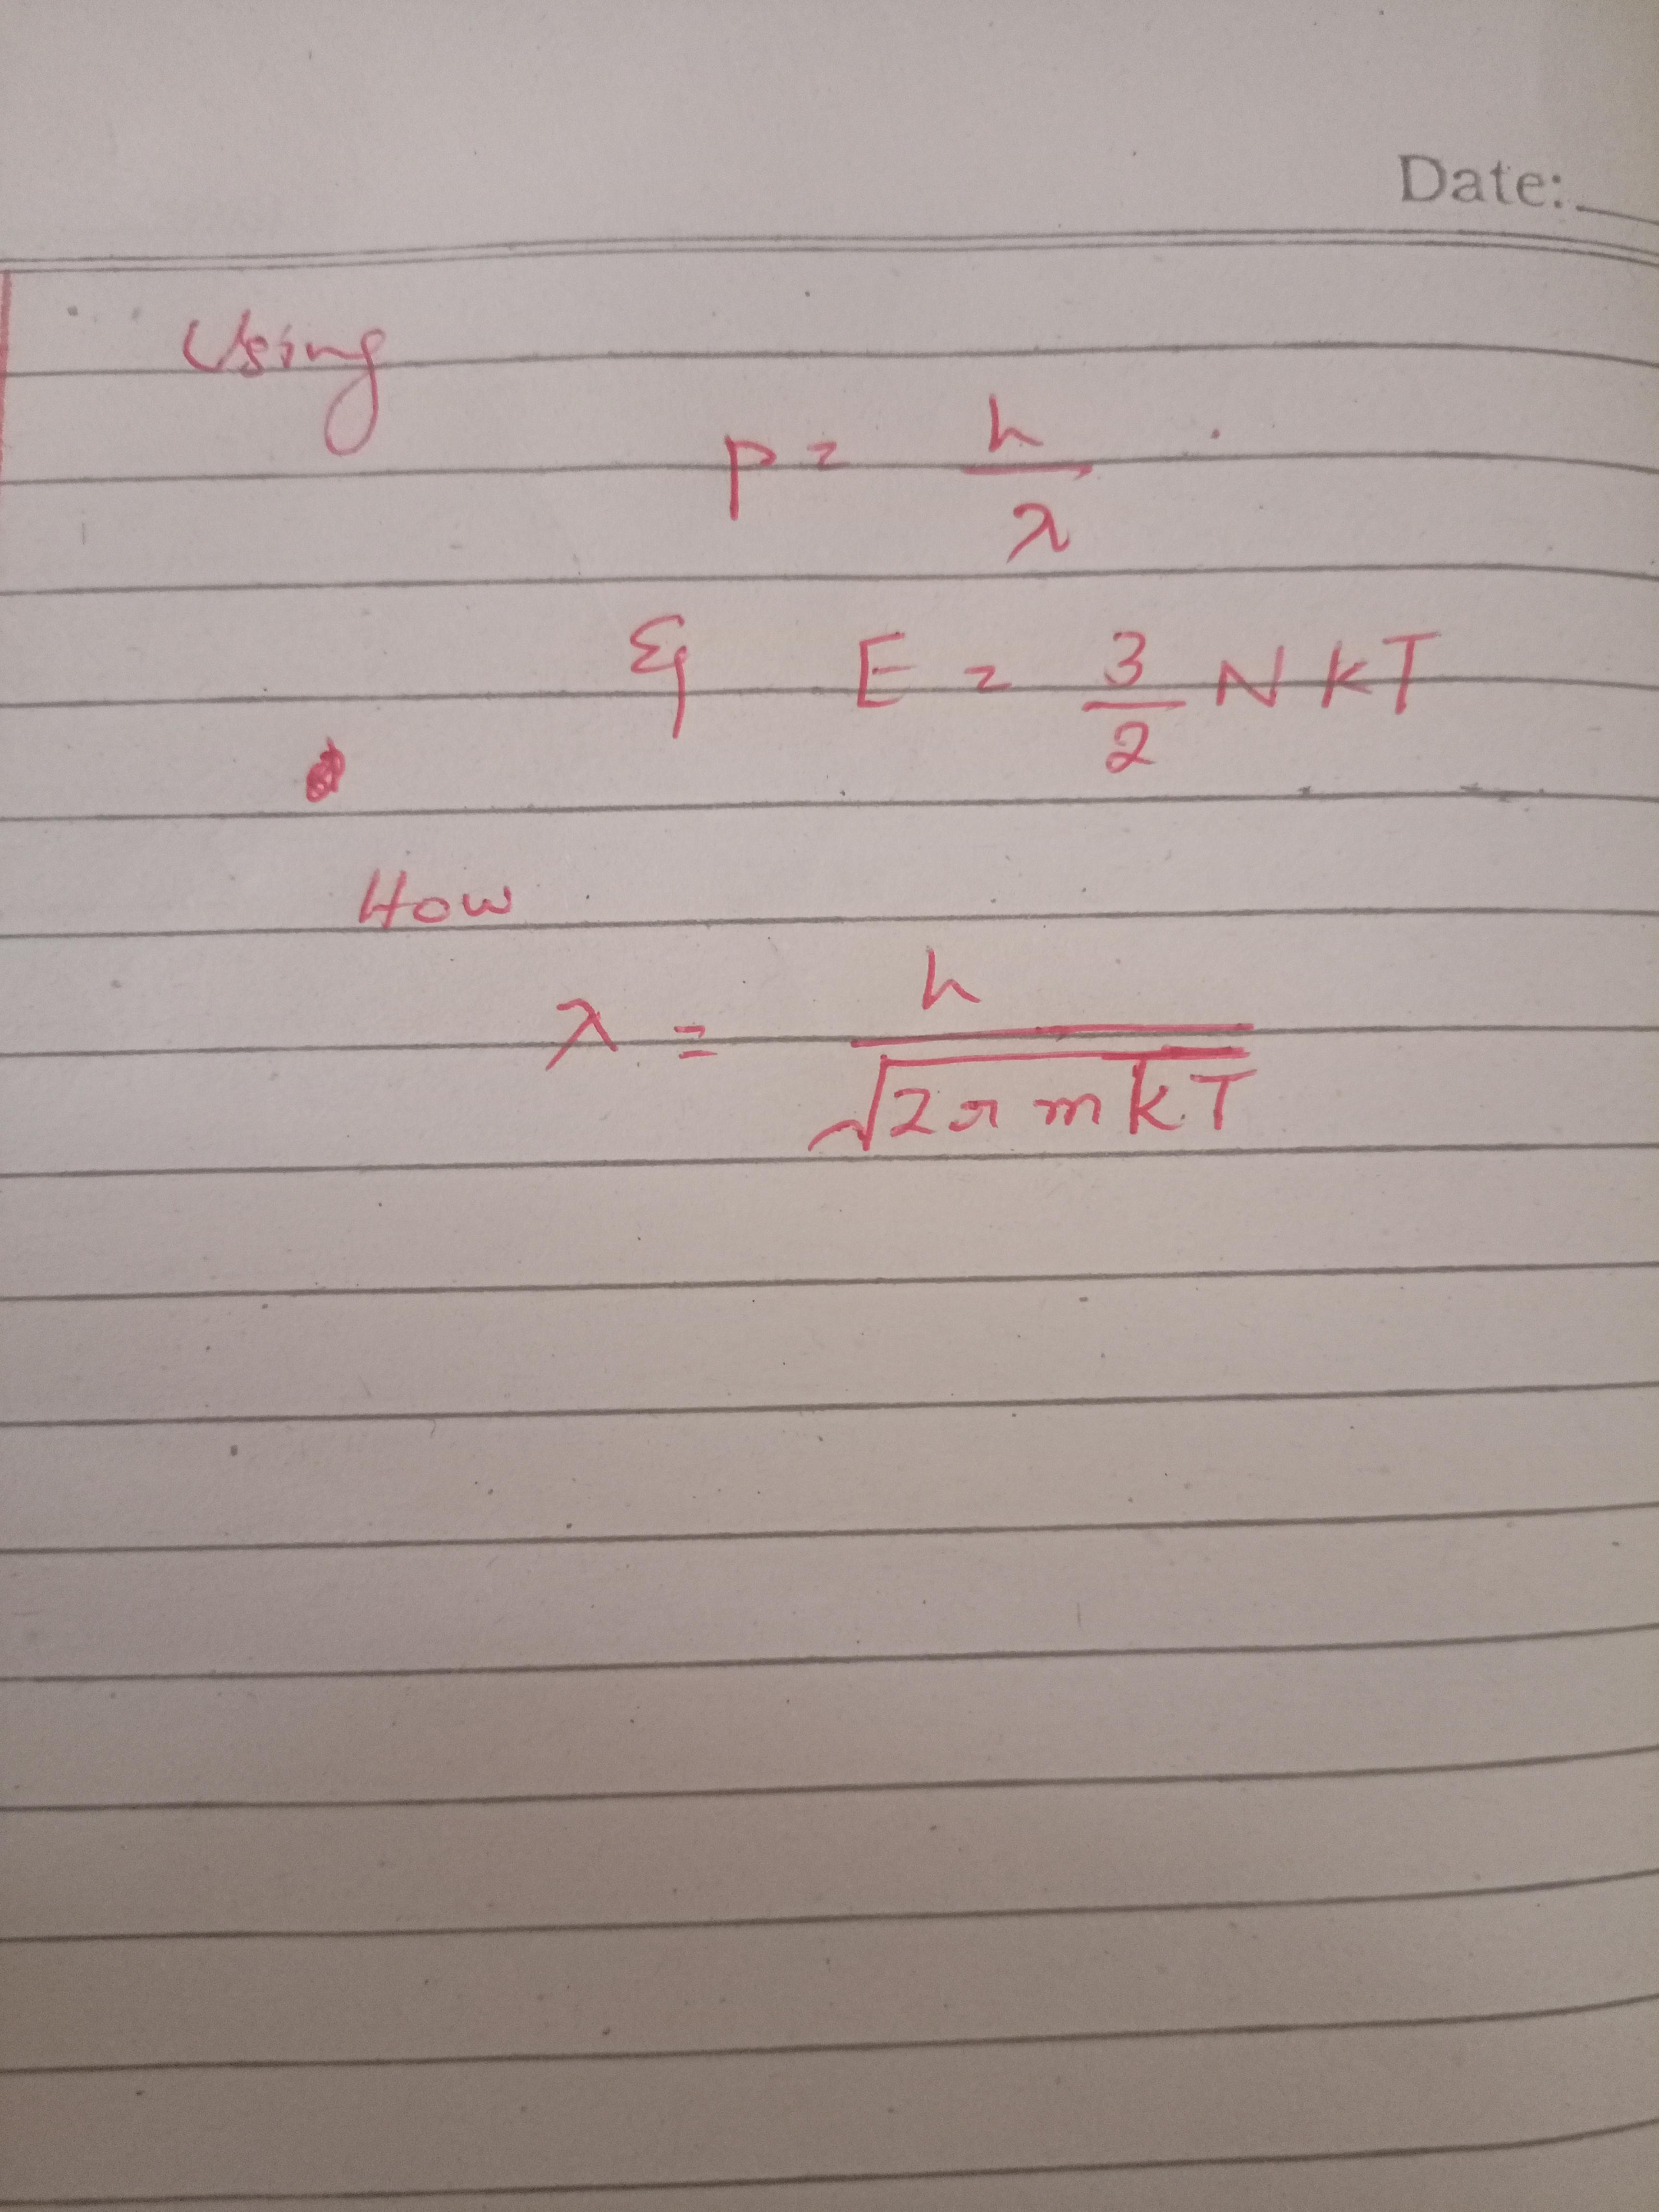 Date:
Using
P = h/λ
& E = 3/2 NkT
How
λ = h/√2π mkT